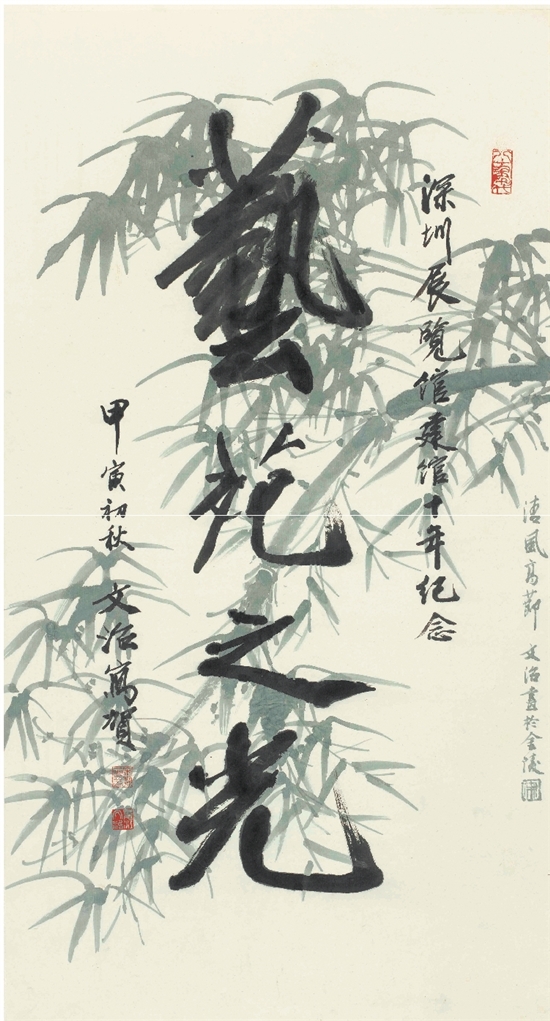 深圳展覽館建館十年纪念
藝苑之光
甲寅初秋 文治寫賀
清風高節 文治畫於金陵